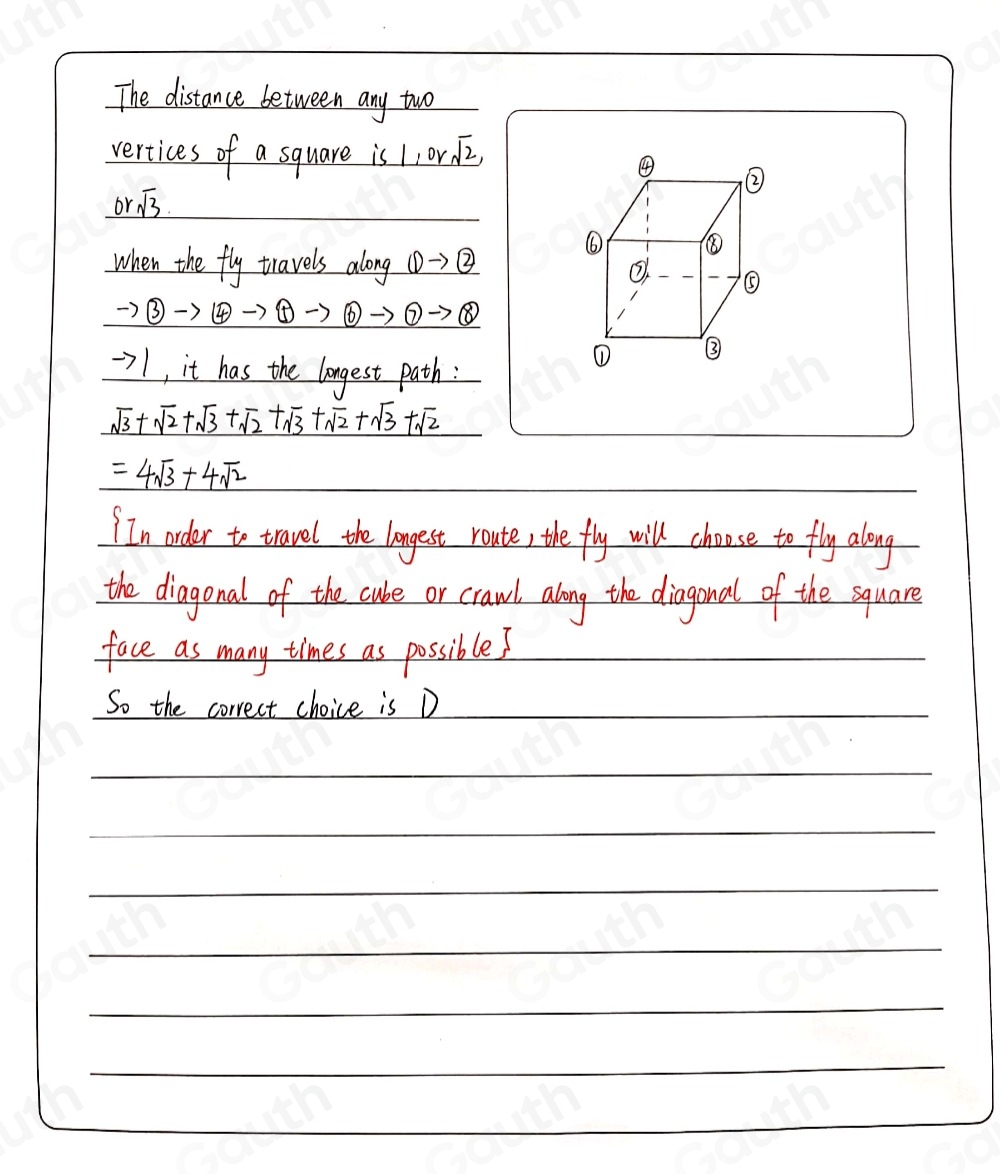 The distance between any two
vertices of a square is 1, or √2,
or √3.
When the fly travels along ①→②
→③→④→⑤→⑥→⑦→⑧
→1, it has the longest path:
√3+√2+√3+√2+√3+√2+√3+√2
= 4√3+4√2
{In order to travel the longest route, the fly will choose to fly along
the diagonal of the cube or crawl along the diagonal of the square
face as many times as possible}
So the correct choice is D
④
②
⑥
⑧
⑦
⑤
①
③
Gauth